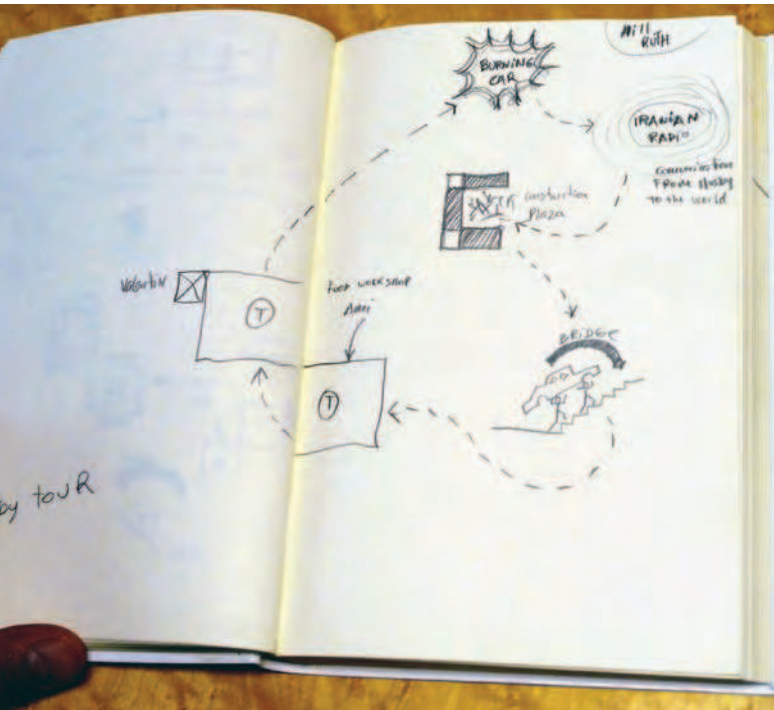 Hill
RUTH
BURNING
CAR
IRANIAN
RADIO
communication
FROM Husby
to the world
construction
Plaza
Valentin
food workshop
BRIDGE
T
T
by touR